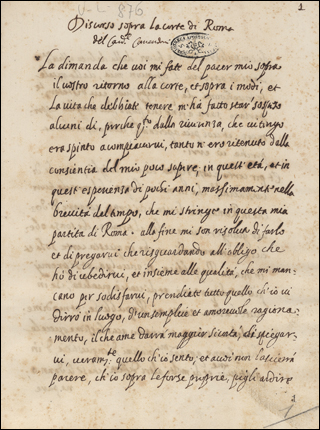 876
1
Discorso sopra la corte di Roma
del Car.
La dimanda che voi mi fate del parer mio sopra
il vostro ritorno alla corte, et sopra i modi, et
La vita che debbiate tenere, m'hà fatto star sospeso
alcuni dì, perche q.to dalla, che vi tengo
era spinto a compiacervi, tanto n'ero ritenuto dalla
del mio poco sapere, in quest'età, et in
quest'esperienza di pochi anni, massimam.te nella
brevità del tempo, che mi stringe in questa mia
partita di Roma. alla fine mi son risoluto di farlo
et di pregarvi che risguardando all'obligo che
hò di ubedirvi, et insieme alle qualità, che mi man-
cano per sodisfarvi, prendiate tutto quello, ch'io vi
dirrò in luogo, d'un semplice et amorevole ragiona-
mento, il che ame darrà maggior sicurtà, di spiegar-
vi, veram.te quello ch'io sento; et a voi non lascierà
parere, ch'io sopra le forse proprie, pigli ardire
1